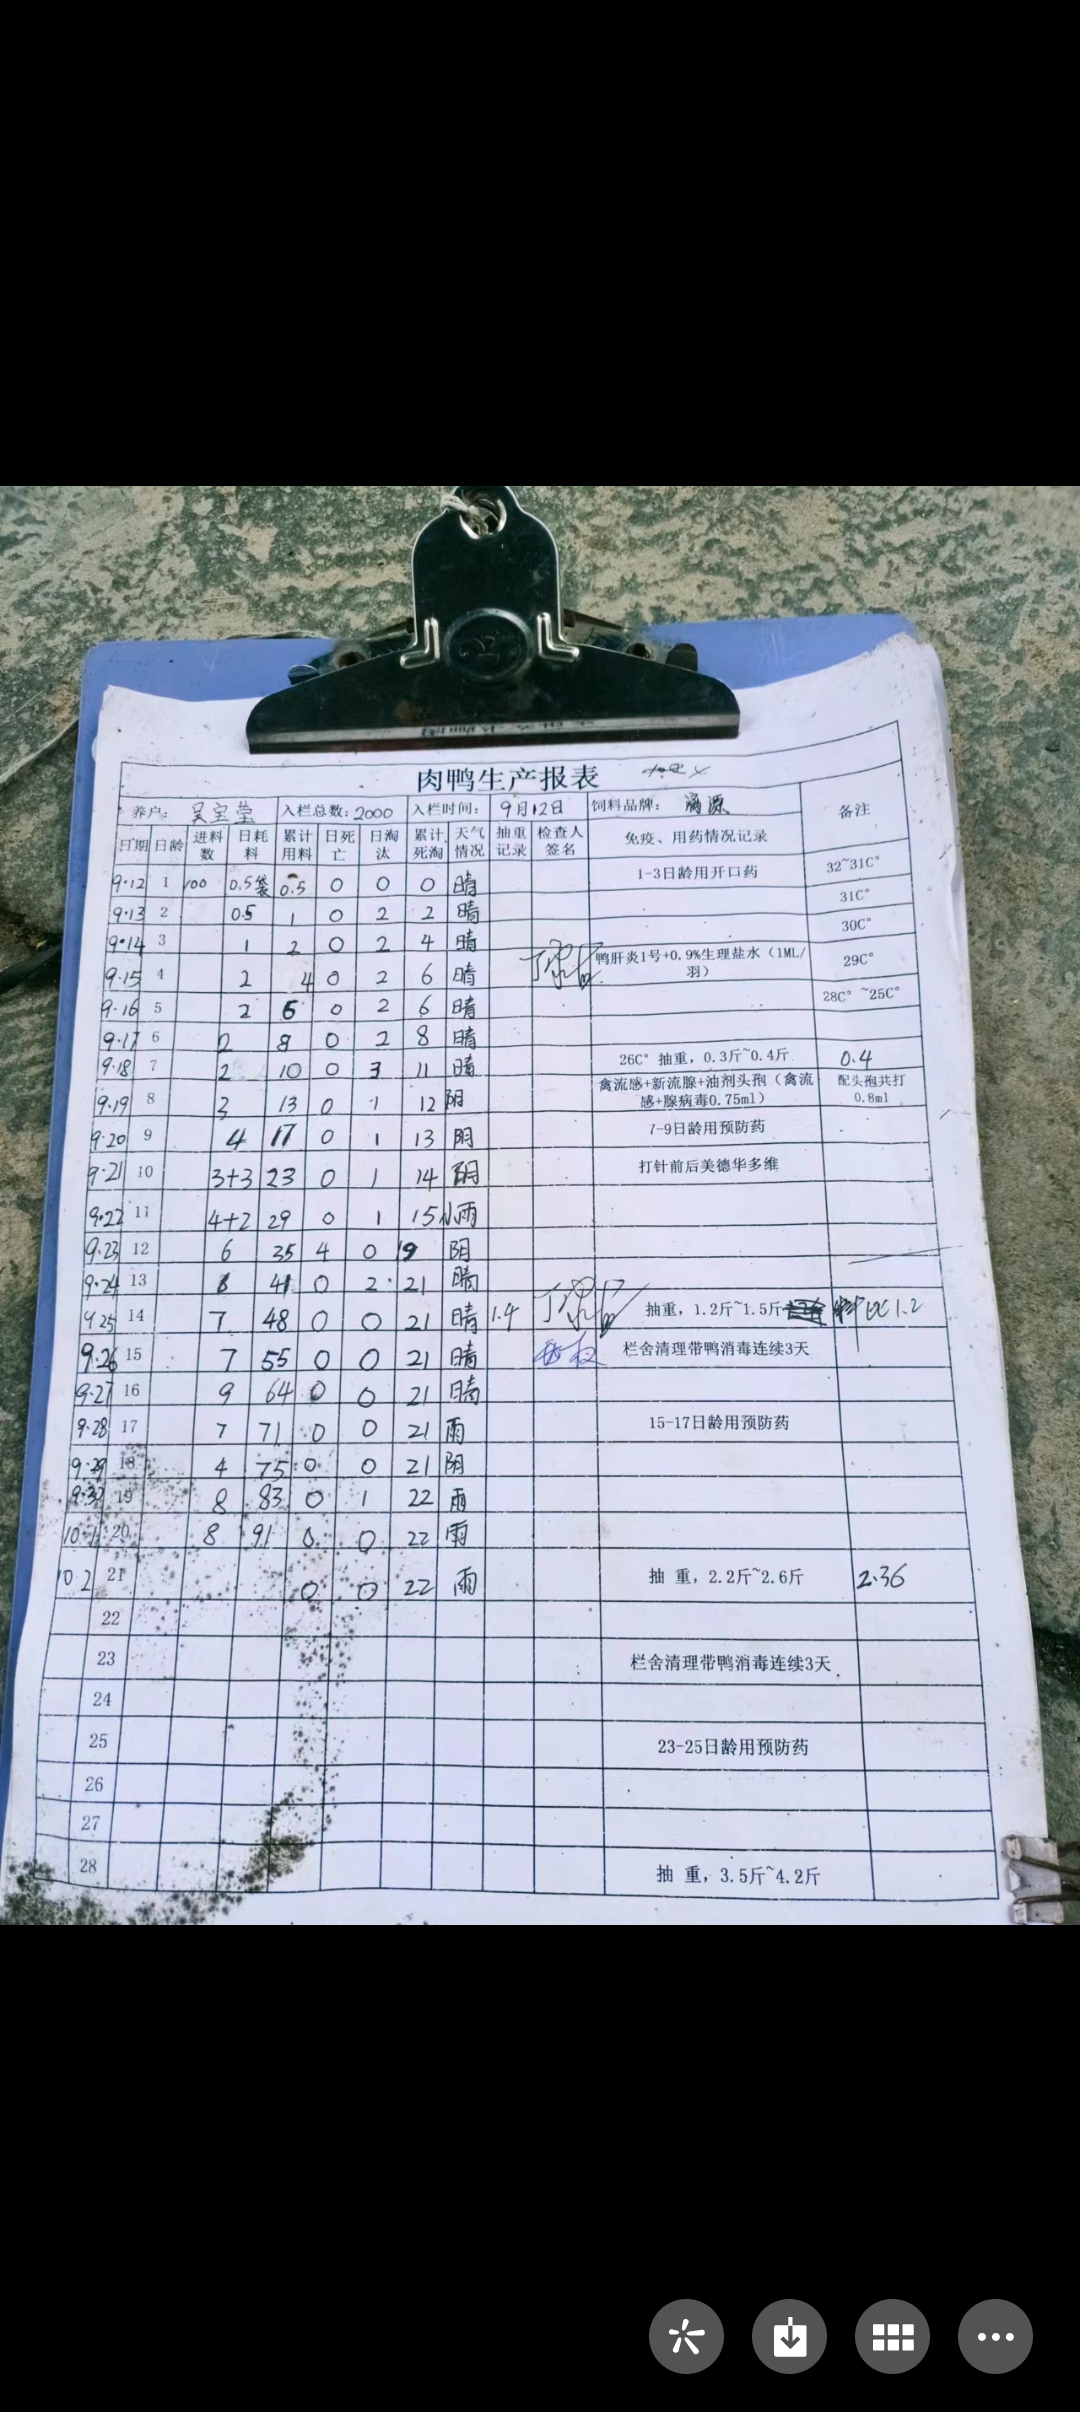 肉鸭生产报表
养户: 吴宝莹 入栏总数:2000 入栏时间: 9月12日 饲料品牌: 源 备注
日期 日龄 进料数 日耗料 累计用料 日死亡 日淘汰 累计死淘 天气情况 抽重记录 检查人签名 免疫、用药情况记录
9.12 1 100 0.5袋 0.5 0 0 0 晴 1-3日龄用开口药 32~31C°
9.13 2 0.5 1 0 2 2 晴 31C°
9.14 3 1 2 0 2 4 晴 30C°
9.15 4 2 4 0 2 6 晴 鸭肝炎1号+0.9%生理盐水（1ML/羽） 29C°
9.16 5 2 6 0 2 6 晴 28C°~25C°
9.17 6 2 8 0 2 8 晴
9.18 7 2 10 0 3 11 晴 26C° 抽重，0.3斤~0.4斤 0.4
9.19 8 3 13 0 1 12 阴 禽流感+新流腺+油剂头孢（禽流感+腺病毒0.75ml） 配头孢共打0.8ml
9.20 9 4 17 0 1 13 阴 7-9日龄用预防药
9.21 10 3+3 23 0 1 14 阴 打针前后美德华多维
9.22 11 4+2 29 0 1 15 小雨
9.23 12 6 35 4 0 19 阴
9.24 13 6 41 0 2 21 晴
9.25 14 7 48 0 0 21 晴 1.4 抽重，1.2斤~1.5斤 料比1.2
9.26 15 7 55 0 0 21 晴 栏舍清理带鸭消毒连续3天
9.27 16 9 64 0 0 21 晴
9.28 17 7 71 0 0 21 雨 15-17日龄用预防药
9.29 18 4 75 0 0 21 阴
9.30 19 8 83 0 1 22 雨
10.1 20 8 91 0 0 22 雨
10.2 21 0 0 22 雨 抽 重，2.2斤~2.6斤 2.36
22
23 栏舍清理带鸭消毒连续3天
24
25 23-25日龄用预防药
26
27
28 抽 重，3.5斤~4.2斤